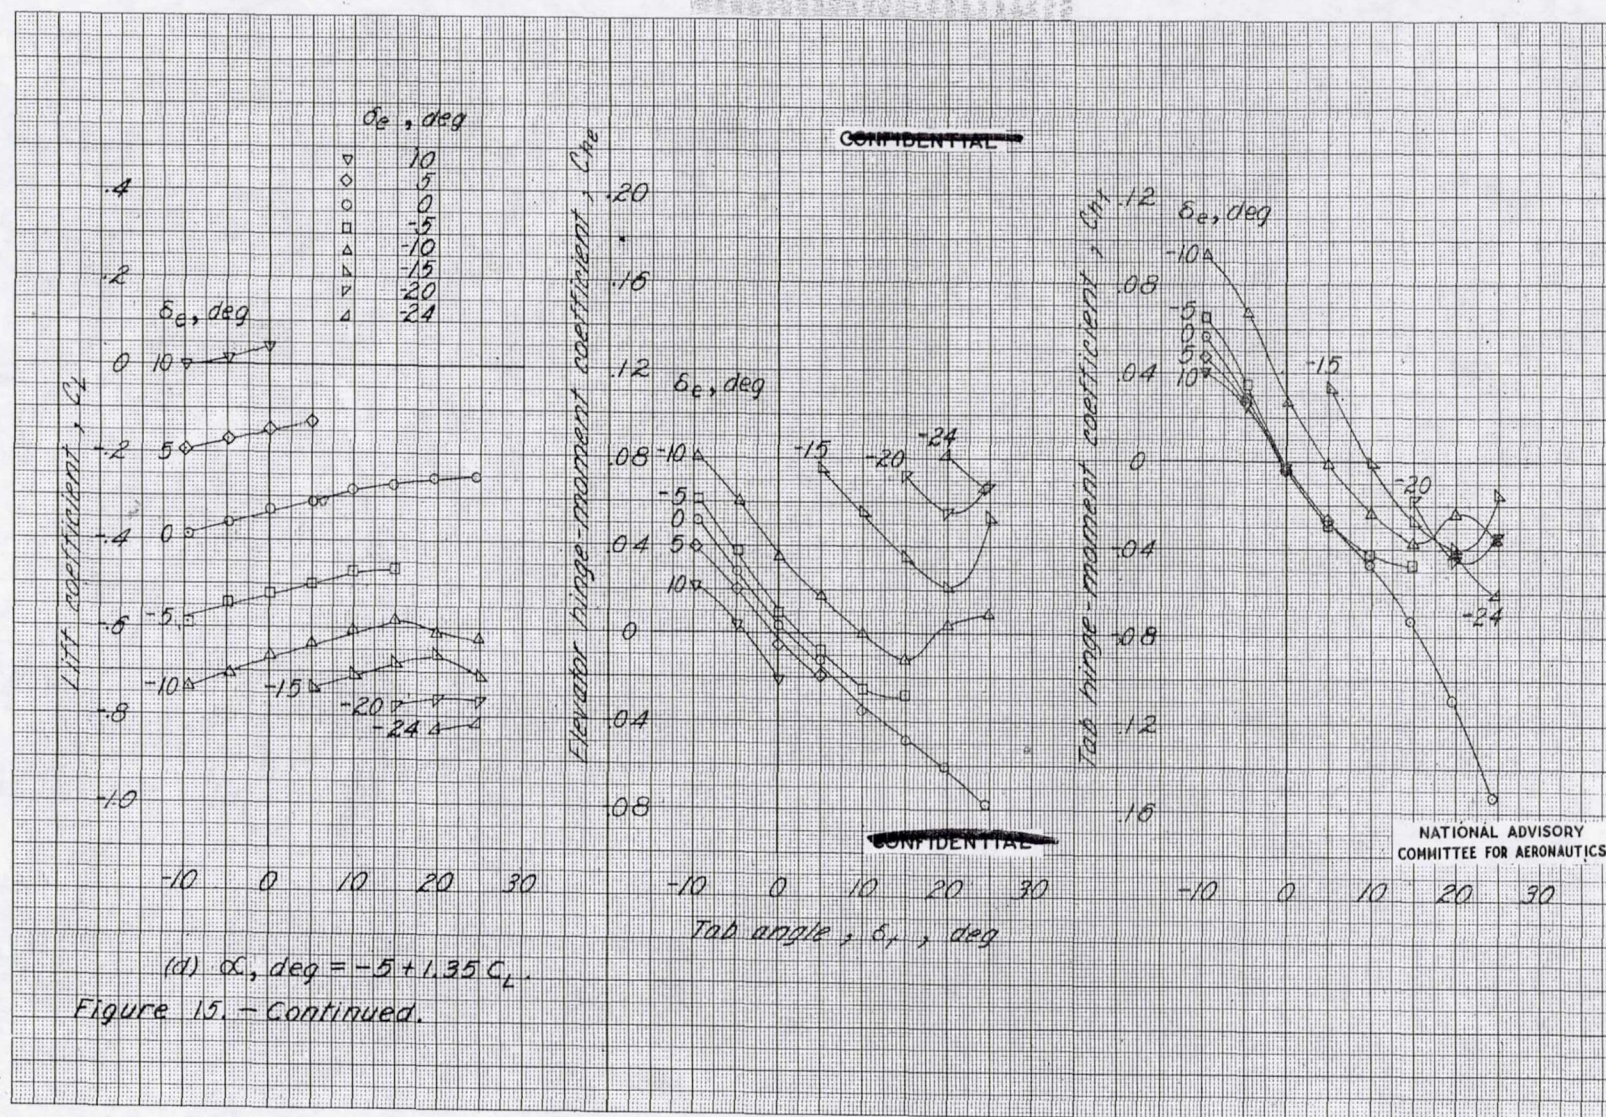 CONFIDENTIAL
δe, deg
10
5
0
-5
-10
-15
-20
-24
Lift coefficient, CL
.4
.2
0
-.2
-.4
-.6
-.8
-1.0
δe, deg
10
5
0
-5
-10
-15
-20
-24
-10 0 10 20 30
Elevator hinge-moment coefficient, Che
.20
.16
.12
.08
.04
0
.04
.08
δe, deg
-10
-5
0
5
10
-15
-20
-24
-10 0 10 20 30
Tab hinge-moment coefficient, Cht
.12
.08
.04
0
-.04
-.08
.12
.16
δe, deg
-10
-5
0
5
10
-15
-20
-24
-10 0 10 20 30
CONFIDENTIAL
NATIONAL ADVISORY
COMMITTEE FOR AERONAUTICS
Tab angle, δt, deg
(d) α, deg = -5 + 1.35 CL.
Figure 15. - Continued.